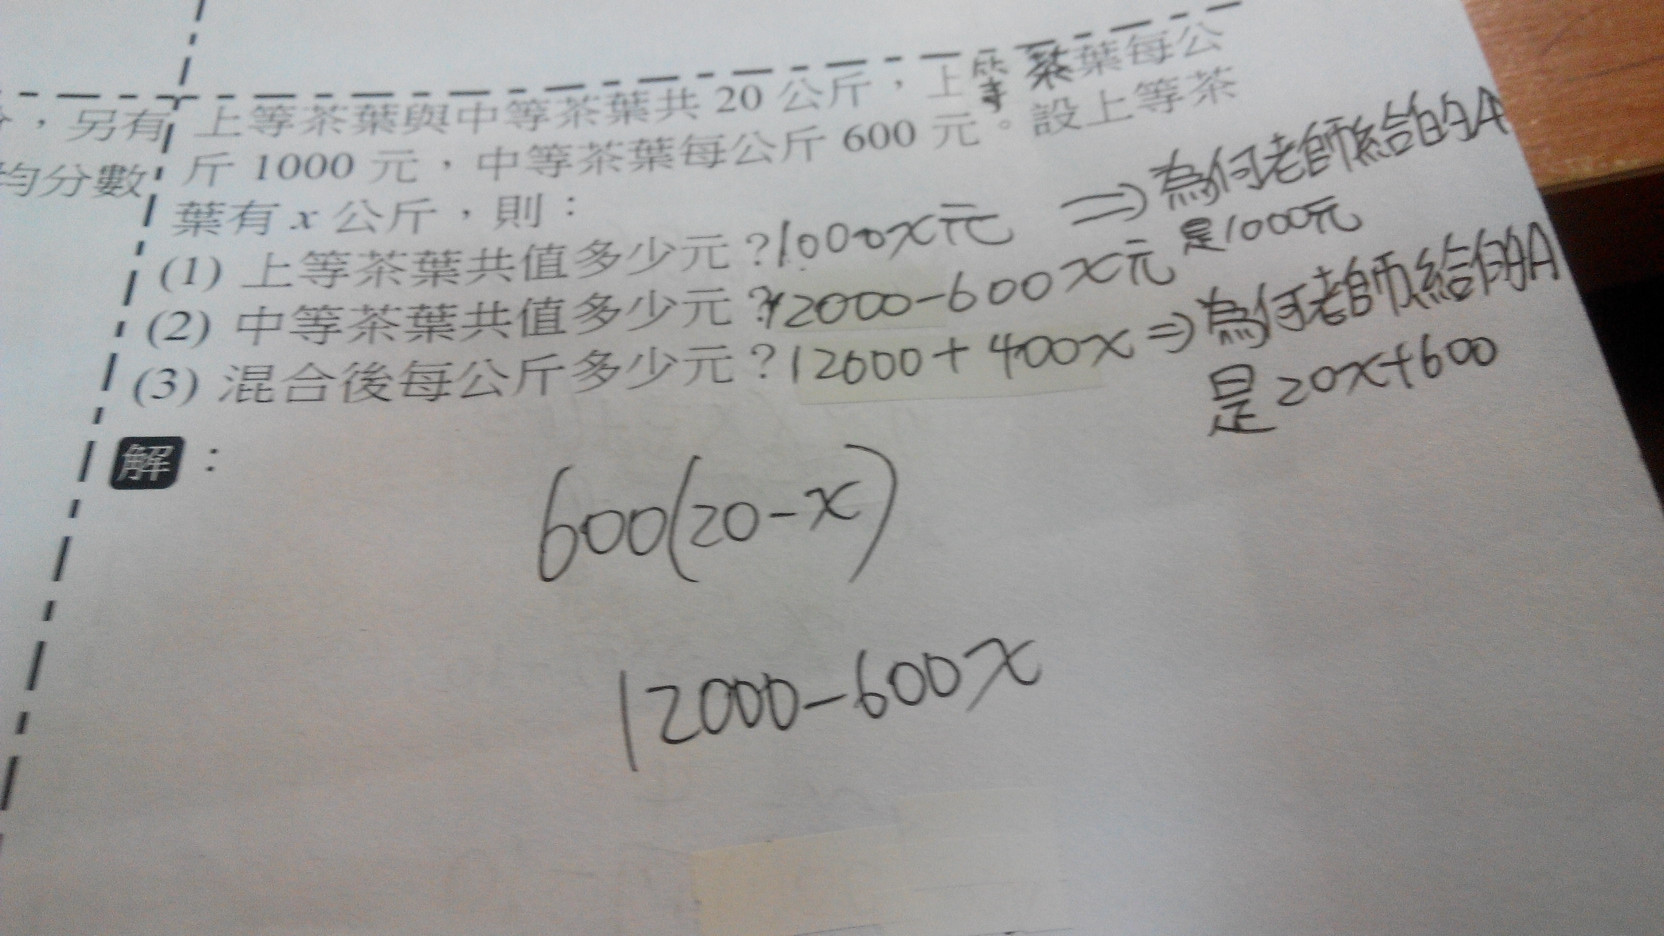 ，另有
均分數
上等茶葉與中等茶葉共 20 公斤，上等茶葉每公
斤 1000 元，中等茶葉每公斤 600 元。設上等茶
葉有 x 公斤，則：
(1) 上等茶葉共值多少元？1000x元 ⇒ 為何老師給的A
是1000元
(2) 中等茶葉共值多少元？12000-600x元
(3) 混合後每公斤多少元？12000+400x ⇒ 為何老師給的A
是20x+600
解：
600(20-x)
12000-600x